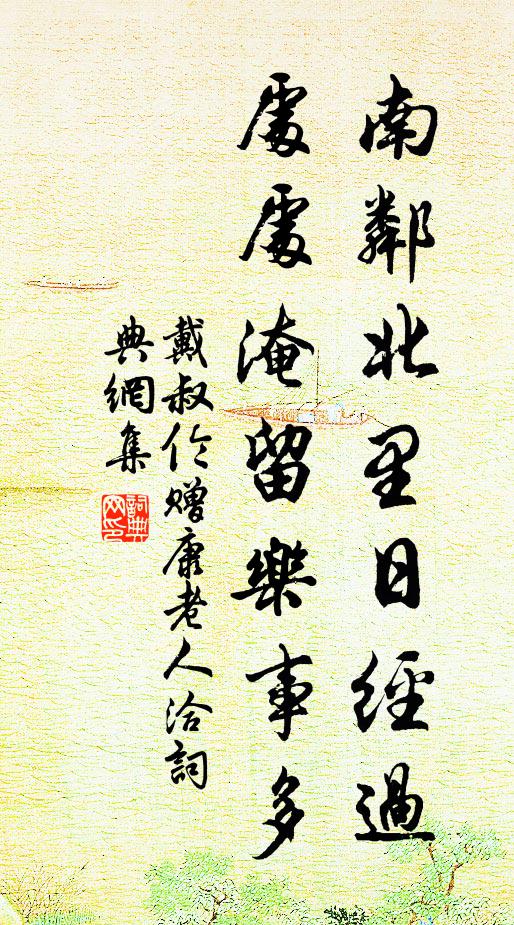 南鄰北里日經過
處處淹留樂事多
戴叔伦赠康老人洽詞
典網集
詞典
网印